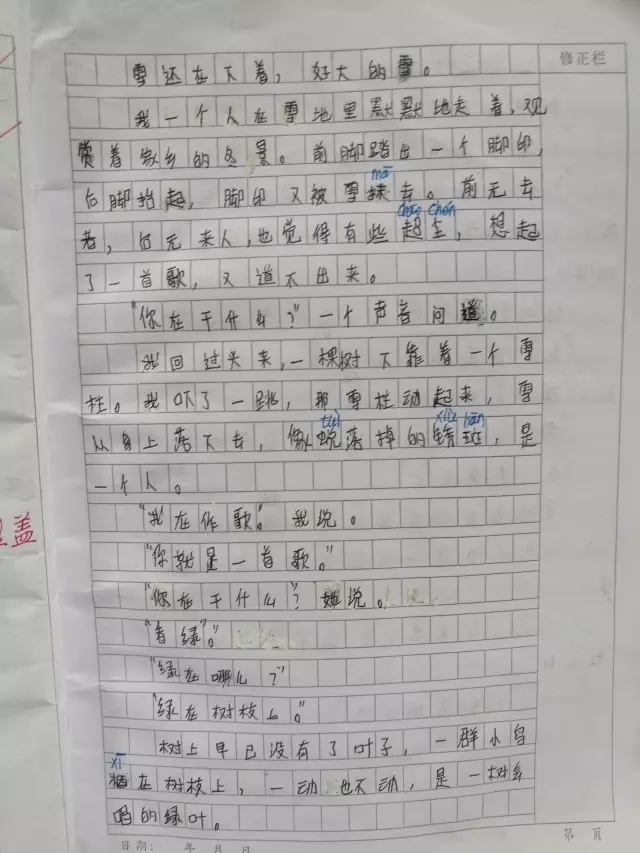 修正栏
雪还在下着，好大的雪。
我一个人在雪地里默默地走着，观
赏着故乡的冬景。前脚踏出一个脚印，
mā
后脚抬起，脚印又被雪抹去。前无去
chāo chén
者，后无来人，也觉得有些超尘，想起
了一首歌，又道不出来。
“你在干什么？”一个声音问道。
我回过头来，一棵树下靠着一个雪
柱。我吓了一跳，那雪柱动起来，雪
tuì xiù bān
从身上落下去，像蜕落掉的锈斑，是
一个人。
盖
“我在作歌。”我说。
“你就是一首歌。”
“你在干什么？”她说。
“看绿”。
“绿在哪儿？”
“绿在树枝上。”
树上早已没有了叶子，一群小鸟
xī
栖在树枝上，一动也不动，是一树会
唱的绿叶。
日期： 年 月 日 第 页